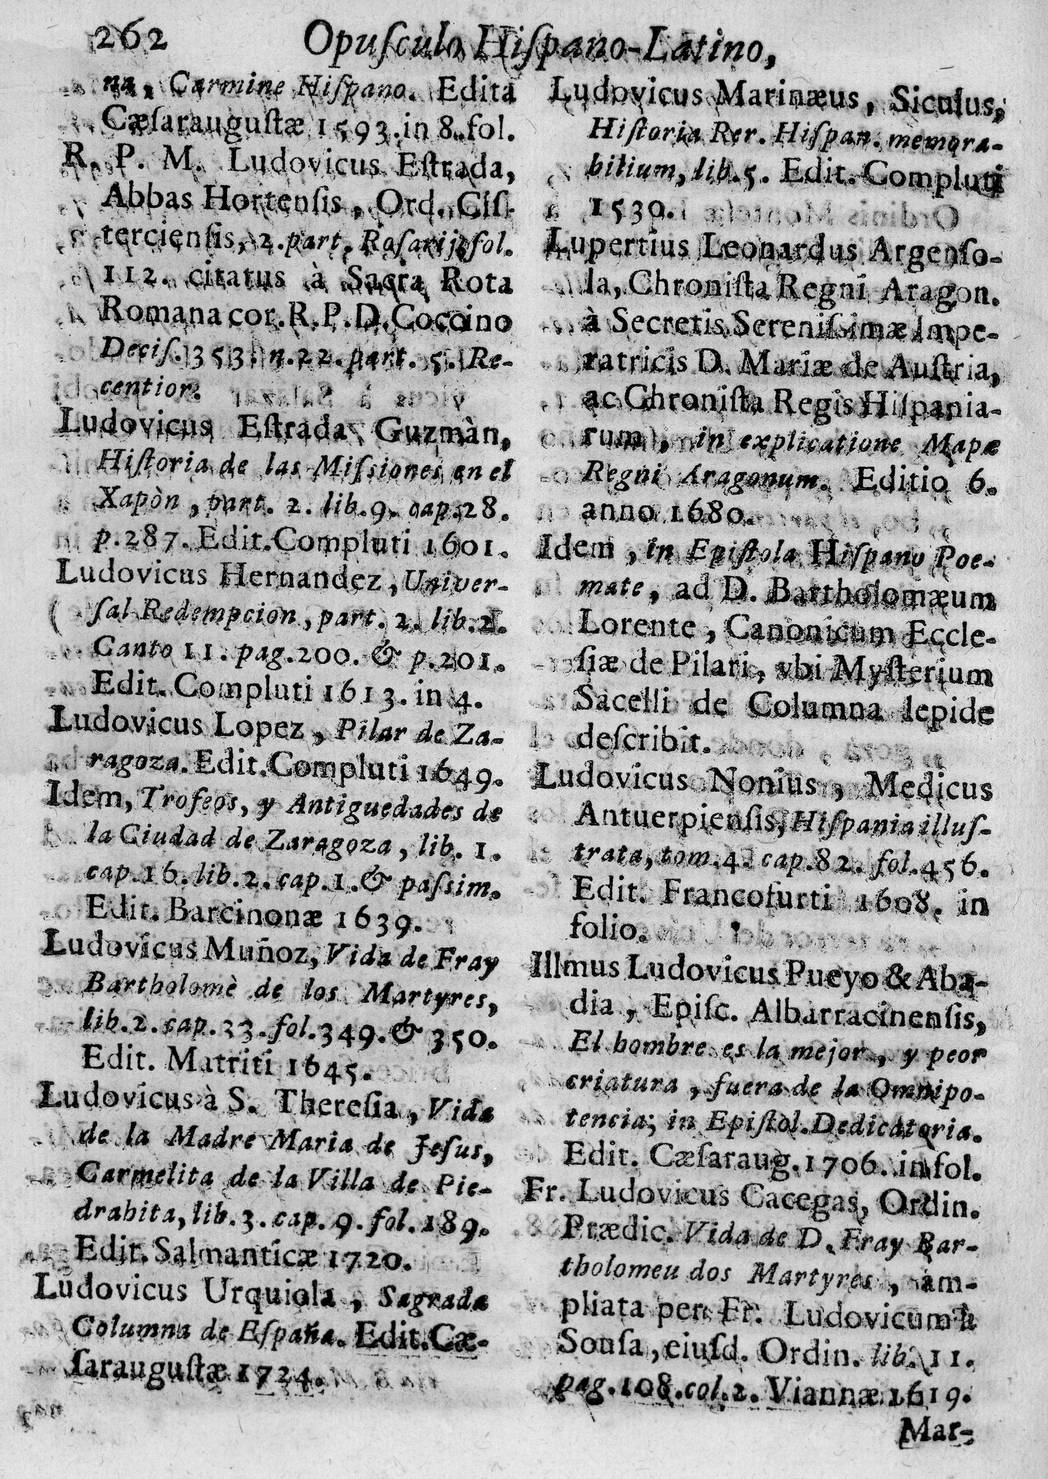 262 Opuſculo Hiſpano-Latino,
na, Carmine Hiſpano. Edita
Cæſarauguſtæ 1593. in 8. fol.
R. P. M. Ludovicus Eſtrada,
Abbas Hortenſis, Ord. Ciſ-
tercienſis, 2. part. Roſarij, fol.
112. citatus à Sacra Rota
Romana cor. R. P. D. Coccino
Deciſ. 353. n. 22. part. 5. Re-
centior.
Ludovicus Eſtrada Guzmàn,
Hiſtoria de las Miſsiones en el
Xapòn, part. 2. lib. 9. cap. 28.
p. 287. Edit. Compluti 1601.
Ludovicus Hernandez, Univer-
ſal Redempcion, part. 2. lib. 2.
Canto 11. pag. 200. & p. 201.
Edit. Compluti 1613. in 4.
Ludovicus Lopez, Pilar de Za-
ragoza. Edit. Compluti 1649.
Idem, Trofeos, y Antiguedades de
la Ciudad de Zaragoza, lib. 1.
cap. 16. lib. 2. cap. 1. & paſsim.
Edit. Barcinonæ 1639.
Ludovicus Muñoz, Vida de Fray
Bartholomè de los Martyres,
lib. 2. cap. 33. fol. 349. & 350.
Edit. Matriti 1645.
Ludovicus à S. Thereſia, Vida
de la Madre Maria de Jeſus,
Carmelita de la Villa de Pie-
drahita, lib. 3. cap. 9. fol. 189.
Edit. Salmanticæ 1720.
Ludovicus Urquiola, Sagrada
Columna de Eſpaña. Edit. Cæ-
ſarauguſtæ 1724.
Ludovicus Marinæus, Siculus,
Hiſtoria Rer. Hiſpan. memora-
bilium, lib. 5. Edit. Compluti
1530.
Lupertius Leonardus Argenſo-
la, Chroniſta Regni Aragon.
à Secretis Sereniſsimæ Impe-
ratricis D. Mariæ de Auſtria,
ac Chroniſta Regis Hiſpania-
rum, in explicatione Mapæ
Regni Aragonum. Editio 6.
anno 1680.
Idem, in Epiſtola Hiſpano Poe-
mate, ad D. Bartholomæum
Lorente, Canonicum Eccle-
ſiæ de Pilari, vbi Myſterium
Sacelli de Columna lepide
deſcribit.
Ludovicus Nonius, Medicus
Antuerpienſis, Hiſpania illuſ-
trata, tom. 4. cap. 82. fol. 456.
Edit. Francofurti 1608. in
folio.
Illmus Ludovicus Pueyo & Aba-
dia, Epiſc. Albarracinenſis,
El hombre es la mejor, y peor
criatura, fuera de la Omnipo-
tencia; in Epiſtol. Dedicatoria.
Edit. Cæſaraug. 1706. in fol.
Fr. Ludovicus Cacegas, Ordin.
Prædic. Vida de D. Fray Bar-
tholomeu dos Martyres, am-
pliata per Fr. Ludovicum à
Souſa, eiuſd. Ordin. lib. 11.
pag. 108. col. 2. Viannæ 1619.
Mar-